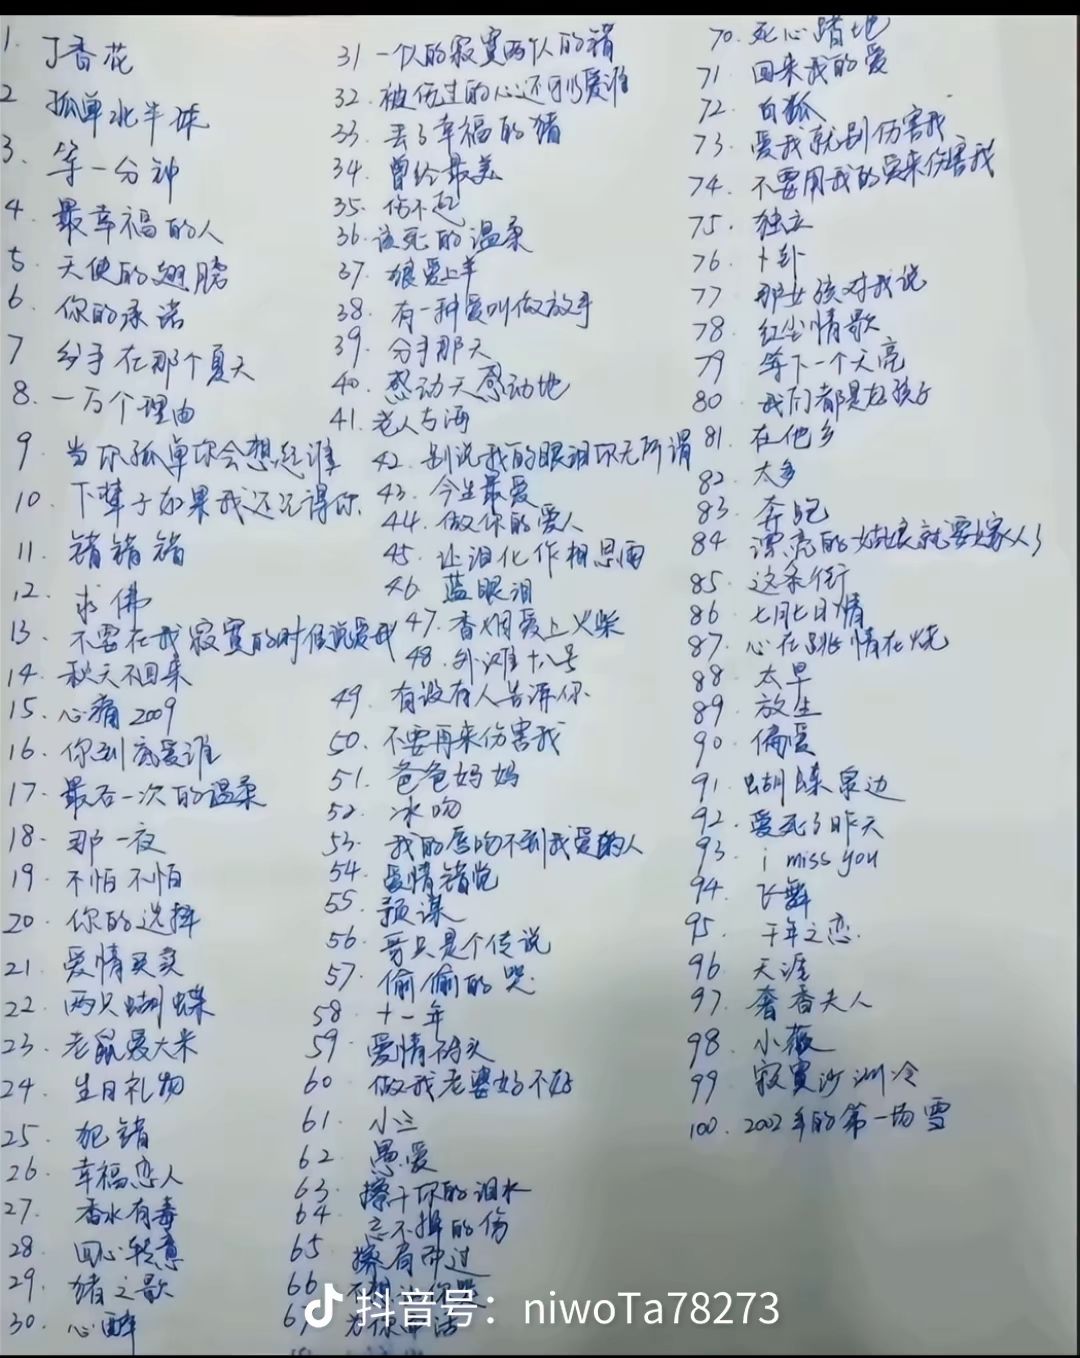 1. 丁香花
2 孤单北半球
3. 等一分钟
4. 最幸福的人
5. 天使的翅膀
6. 你的承诺
7 分手在那个夏天
8. 一万个理由
9. 当你孤单你会想起谁
10. 下辈子如果我还记得你
11. 错错错
12. 求佛
13. 不要在我寂寞的时候说爱我
14. 秋天不回来
15. 心痛2009
16. 你到底爱谁
17. 最后一次的温柔
18. 那一夜
19. 不怕不怕
20. 你的选择
21. 爱情买卖
22. 两只蝴蝶
23. 老鼠爱大米
24. 生日礼物
25. 犯错
26. 幸福恋人
27. 香水有毒
28 回心转意
29. 猪之歌
30. 心醉
31 一个人的寂寞两个人的错
32. 被伤过的心还可以爱谁
33. 丢了幸福的猪
34. 曾经最美
35. 伤不起
36. 该死的温柔
37. 狼爱上羊
38. 有一种爱叫做放手
39. 分手那天
40. 感动天感动地
41. 老人与海
42. 别说我的眼泪你无所谓
43. 今生最爱
44. 做你的爱人
45. 让泪化作相思雨
46 蓝眼泪
47. 香烟爱上火柴
48. 外滩十八号
49. 有没有人告诉你
50. 不要再来伤害我
51. 爸爸妈妈
52. 冰吻
53. 我的唇吻不到我爱的人
54. 爱情错觉
55. 预谋
56. 哥只是个传说
57. 偷偷的哭
58. 十一年
59. 爱情码头
60 做我老婆好不好
61. 小三
62 愚爱
63. 擦干你的泪水
64 忘不掉的伤
65 擦肩而过
66
67 为你
70. 死心踏地
71 回来我的爱
72. 白狐
73. 爱我就别伤害我
74. 不要用我的爱来伤害我
75. 独立
76. 卜卦
77 那女孩对我说
78 红尘情歌
79 等下一个天亮
80 我们都是好孩子
81. 在他乡
82. 太多
83. 奔跑
84 漂亮的姑娘就要嫁人了
85. 这条街
86 七月七日情
87. 心在跳情在烧
88 太早
89. 放生
90 偏爱
91. 蝴蝶泉边
92. 爱死了昨天
93. i miss you
94 飞舞
95. 千年之恋.
96 天涯
97. 奢香夫人
98. 小薇
99. 寂寞沙洲冷
100. 2002年的第一场雪
抖音号：niwoTa78273